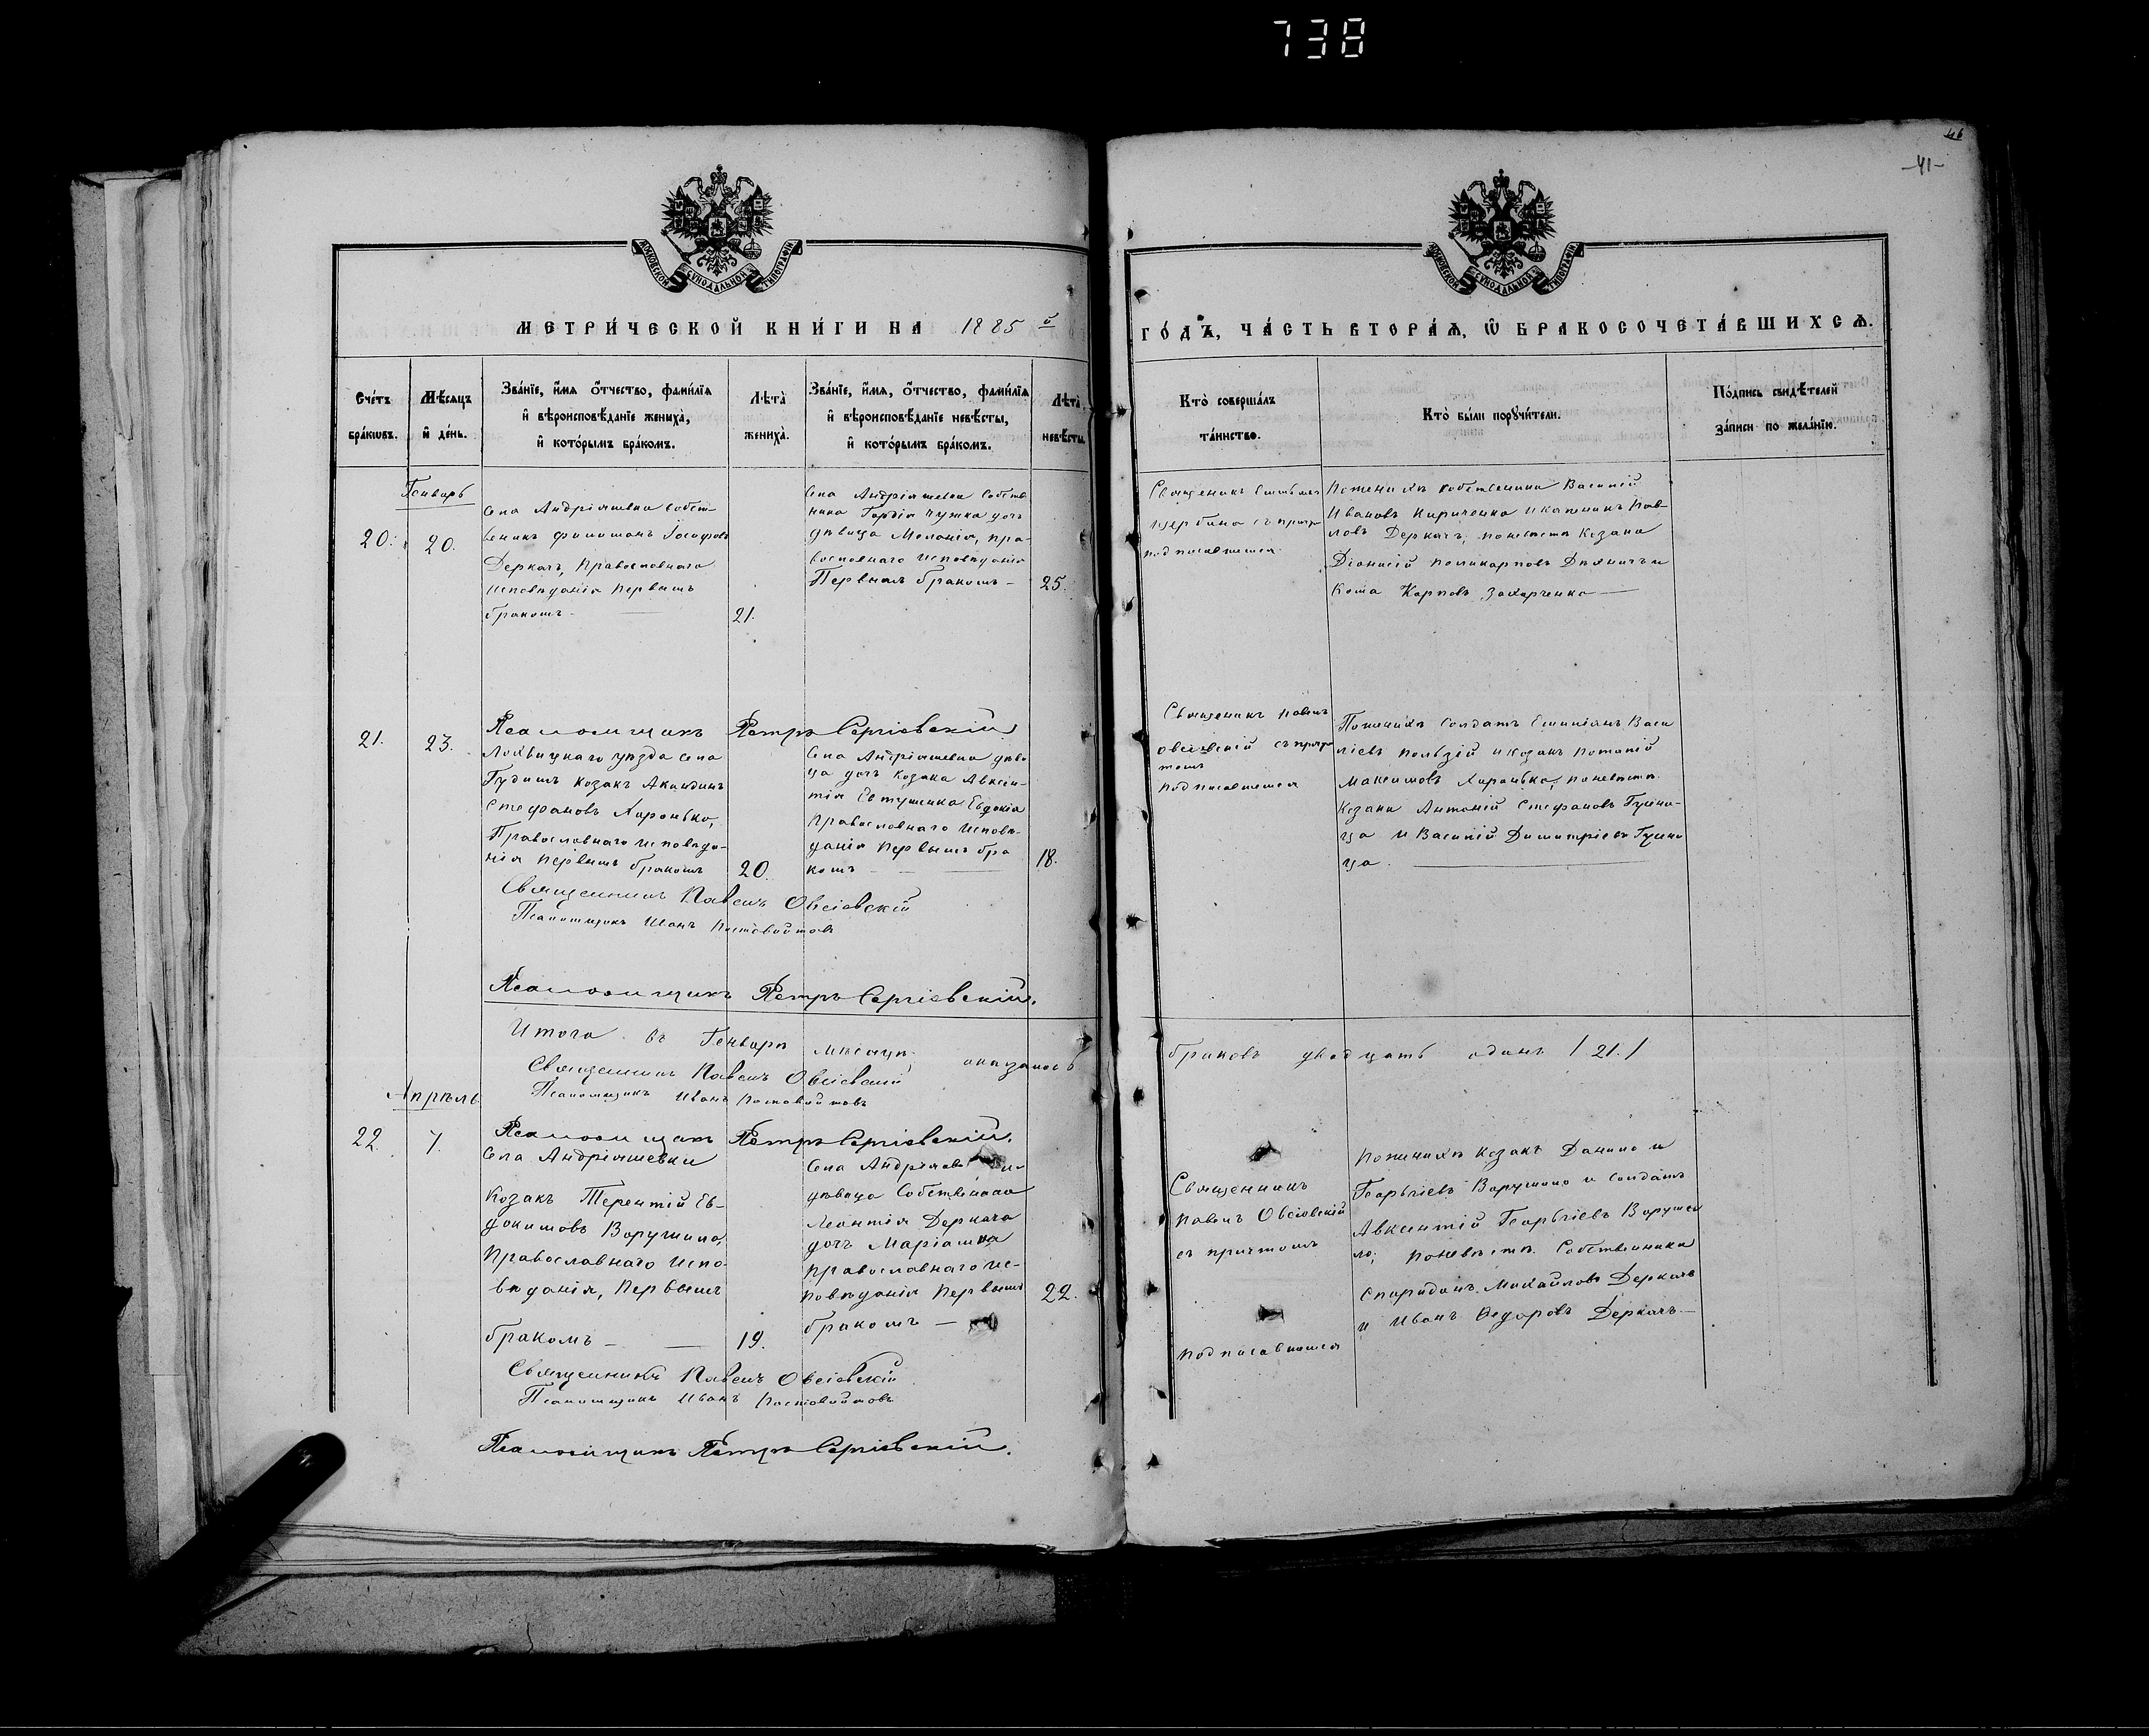 738
46
-41-
МОСКОВСКОЙ СУНОДАЛЬНОЙ ТИПОГРАФІИ
МОСКОВСКОЙ СУНОДАЛЬНОЙ ТИПОГРАФІИ
МЕТРИ́ЧЕСКОЙ КНИ́ГИ НА 1885 й
ГО́ДЪ, ЧА́СТЬ ВТОРА́Ѧ, Ѽ БРАКОСОЧЕТА́ВШИХСѦ.
Сче́тъ бра́ковъ.
Мѣ́сяцъ и де́нь.
Зва́нїе, и́мя, о́тчество, фами́лїя
и вѣроисповѣ́данїе жениха̀,
и кото́рымъ бра́комъ.
Лѣта̀ жениха̀.
Зва́нїе, и́мя, о́тчество, фами́лїя
и вѣроисповѣ́данїе невѣ́сты,
и кото́рымъ бра́комъ.
Лѣта̀ невѣ́сты.
Кто̀ соверша́лъ
та́инство.
Кто̀ бы́ли поручи́тели.
По́дпись свидѣ́телей
за́писи по жела́нїю.
Генварь
20.
20.
Села Андріяшевки собст-
веникъ Филимонъ Іосифовъ
Деркачъ, Православнаго
исповѣданія первымъ
бракомъ
21.
Села Андріяшевки Собств
ника Гордія Чужка дочь
дѣвица Меланія, пра-
вославнаго исповѣданія
Первымъ бракомъ
25.
Священикъ
Щербина съ прич
подписавшемся
По женихѣ собственики Василій
Ивановъ Кириченко и Пав-
ловъ Деркачъ, по невѣстѣ Козаки
Діонисій Поликарповъ и
Карповъ Захарченко
Псаломщикъ Петръ Сергіевскій
21.
23.
Лохвицкаго уѣзда села
Гудимъ козакъ Акиндинъ
Стефановъ Харонько,
Православнаго исповѣда-
нія первымъ бракомъ
20.
Села Андріяшевки дѣви
ца дочь козака Авксен-
тія Евтушика Евдокія
Православнаго исповѣ-
данія первымъ бра
комъ
18.
Священикъ Павелъ
Овсіевскій съ прич
томъ
подписавшемся
По женихѣ солдатъ Емиліянъ Васи
ліевъ и козакъ Потапій
Максимовъ Харонько, по невѣстѣ
Козаки Антоній Стефановъ
и Василій Димитріевъ
Священикъ Павелъ Овсіевскій
Псаломщикъ Иванъ Постовойтовъ
Псаломщикъ Петръ Сергіевскій.
Итого въ Генварѣ мѣсяцѣ оказалось
браковъ двадцать одинъ / 21. /
Священникъ Павелъ Овсіевскій
Псаломщикъ Иванъ Постовойтовъ
Апрѣль
Псаломщикъ Петръ Сергіевскій.
22.
7.
Села Андріяшевки
Козакъ Терентій Ев-
докимовъ Ворушило,
Православнаго испо-
вѣданія, первымъ
бракомъ
19.
Села Андріяшевки
дѣвица Собственика
Леонтія Деркача
дочь Маріамна
православнаго ис-
повѣданія первымъ
бракомъ
22.
Священникъ
Павелъ Овсіевскій
съ причтомъ
подписавшемся
По женихѣ козакъ Данило и
Георгіевъ Ворушило и солдатъ
Авксентій Георгіевъ Воруши
ло; по невѣстѣ. Собственики
Спиридонъ Михайловъ Деркачъ
и Иванъ Ѳедоровъ Деркачъ
Священникъ Павелъ Овсіевскій
Псаломщикъ Иванъ Постовойтовъ
Псаломщикъ Петръ Сергіевскій.